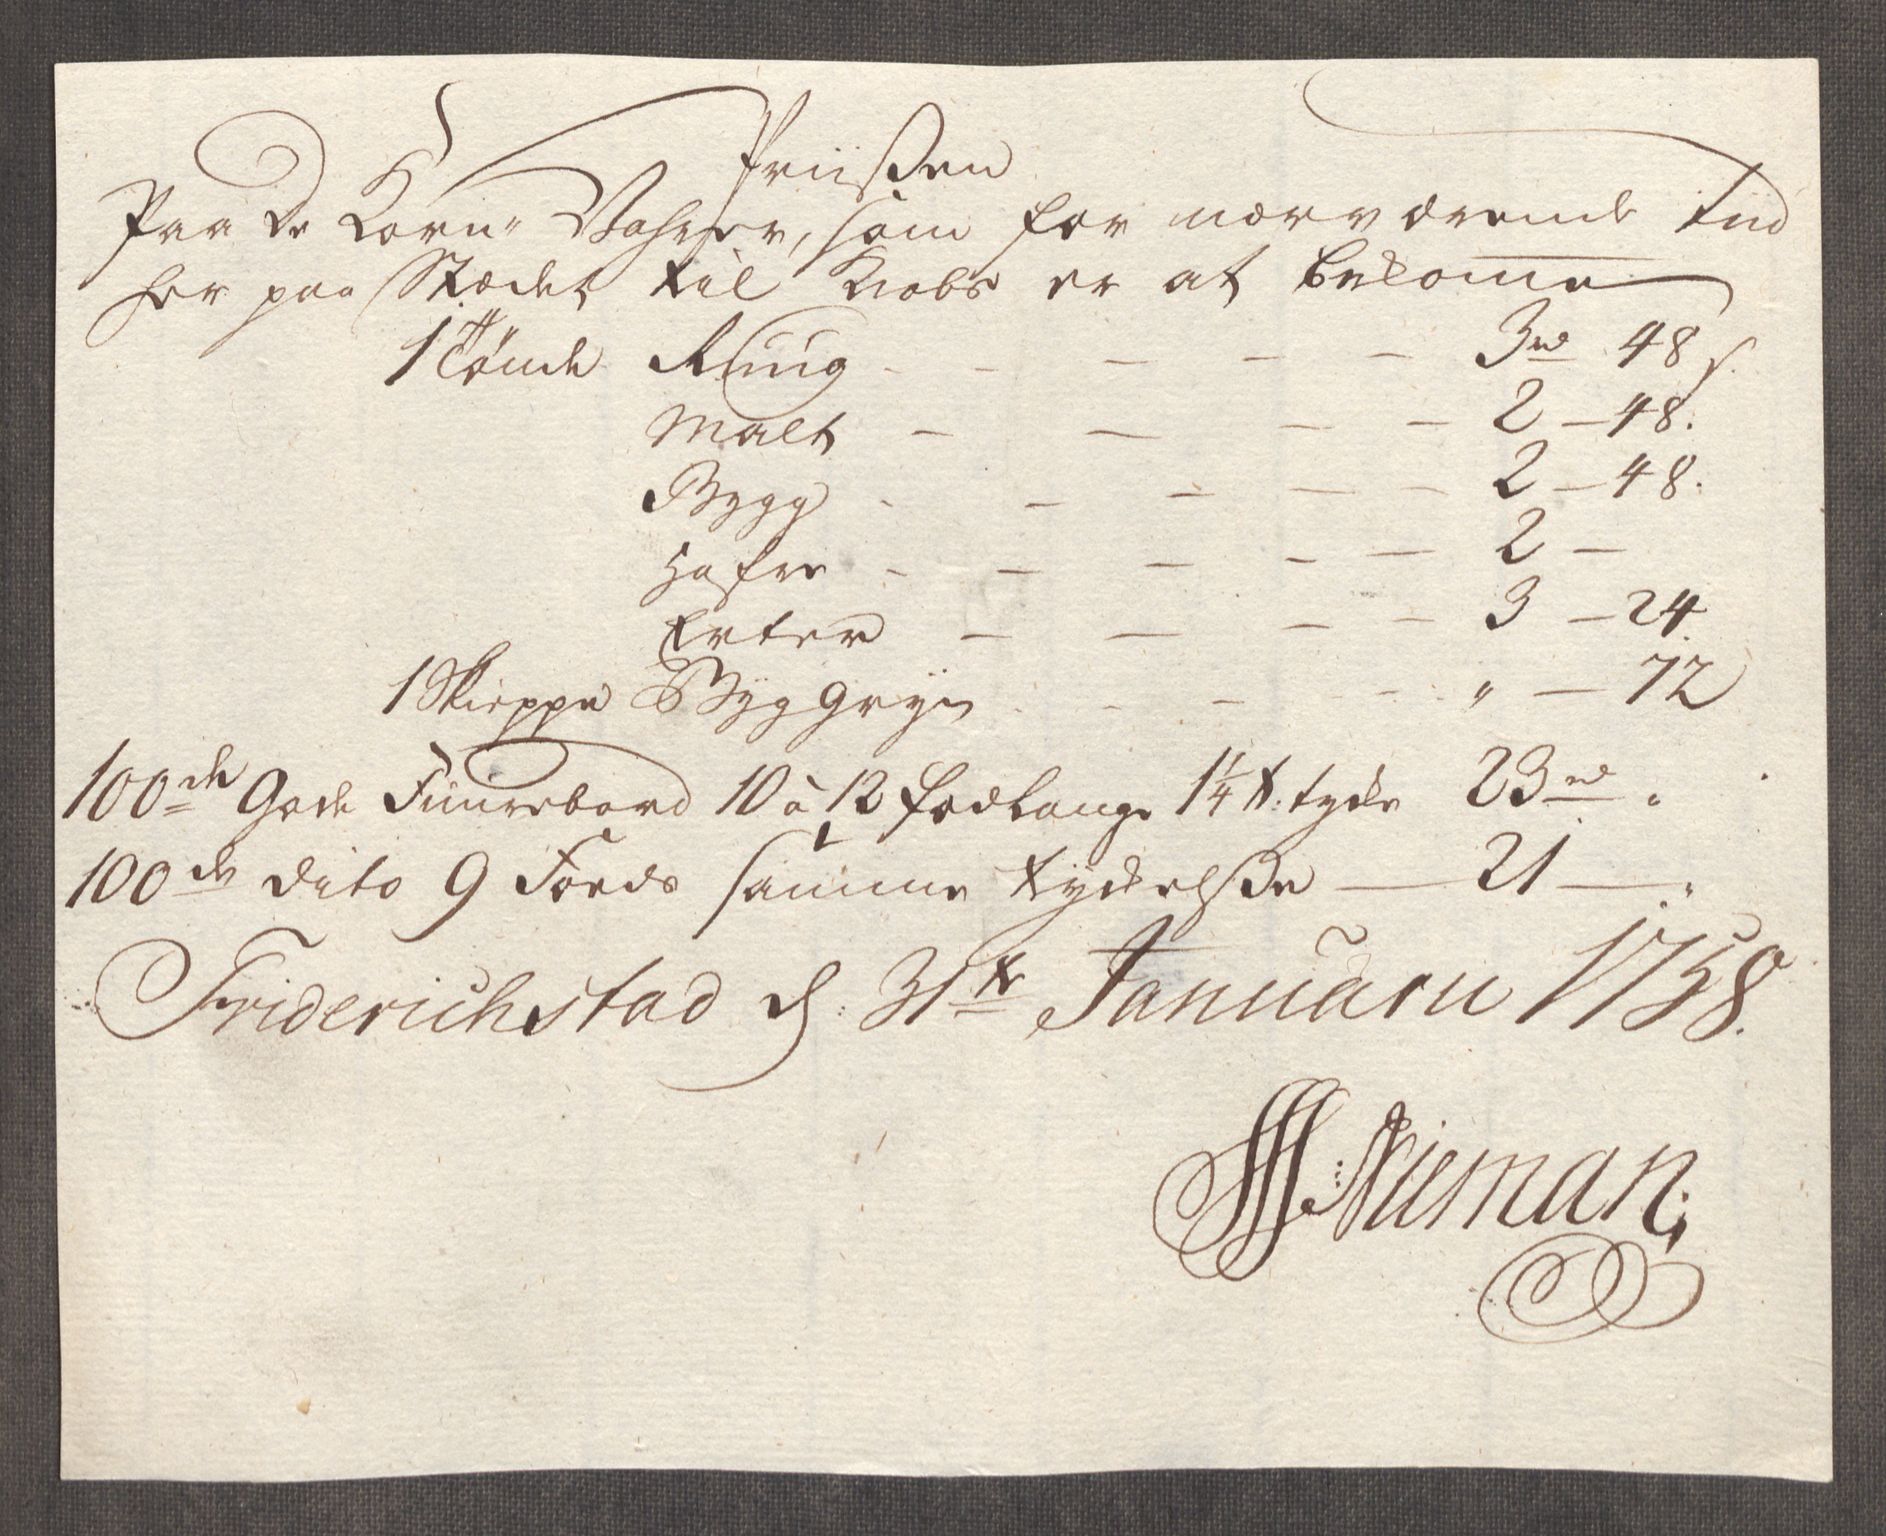 Priißen
Paa De Korn Vahrer, som for nærværende Tiid
her paa Stædet til Kiøbs er at bekomme
1 Tønde Ruug - - - - 3 rd 48 s.
Malt - - - - 2 - 48.
Bygg - - - - - 2 - 48.
Hafre - - - - - 2 -
Erter - - - - 3 - 24.
1 Skieppe Byg Gryn - - - " - 72
100de Gode Fuurebord 10 à 12 fod Lange 1 1/4 t: tyke 23 rd "
100de dito 9 Foeds samme tykelße - 21 - "
Friderichstad d: 31te Januarii 1758.
Nieman